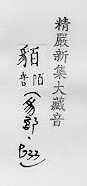 精嚴新集大藏音
貊陌音(豸部·B33)